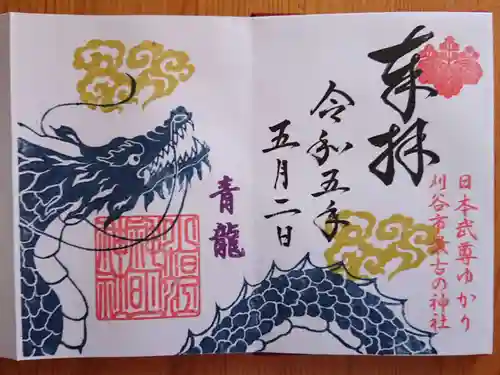 奉拝
日本武尊ゆかり
刈谷市最古の神社
令和五年
五月二日
青龍
小垣江
神明
神社